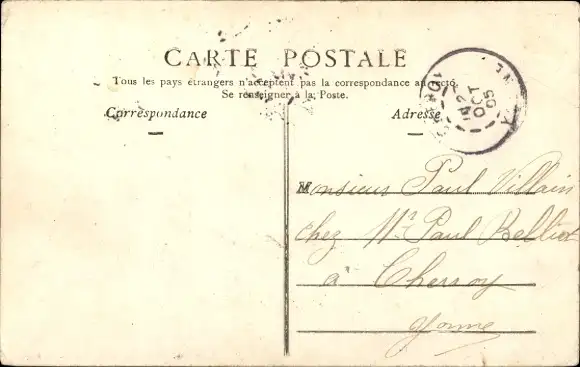 CARTE POSTALE
Tous les pays étrangers n'acceptent pas la correspondance au recto.
Se renseigner à la Poste.
Correspondance
Adresse
OCT
05
Monsieur Paul Villain
chez Mr Paul Belliot
à Cheroy
Yonne